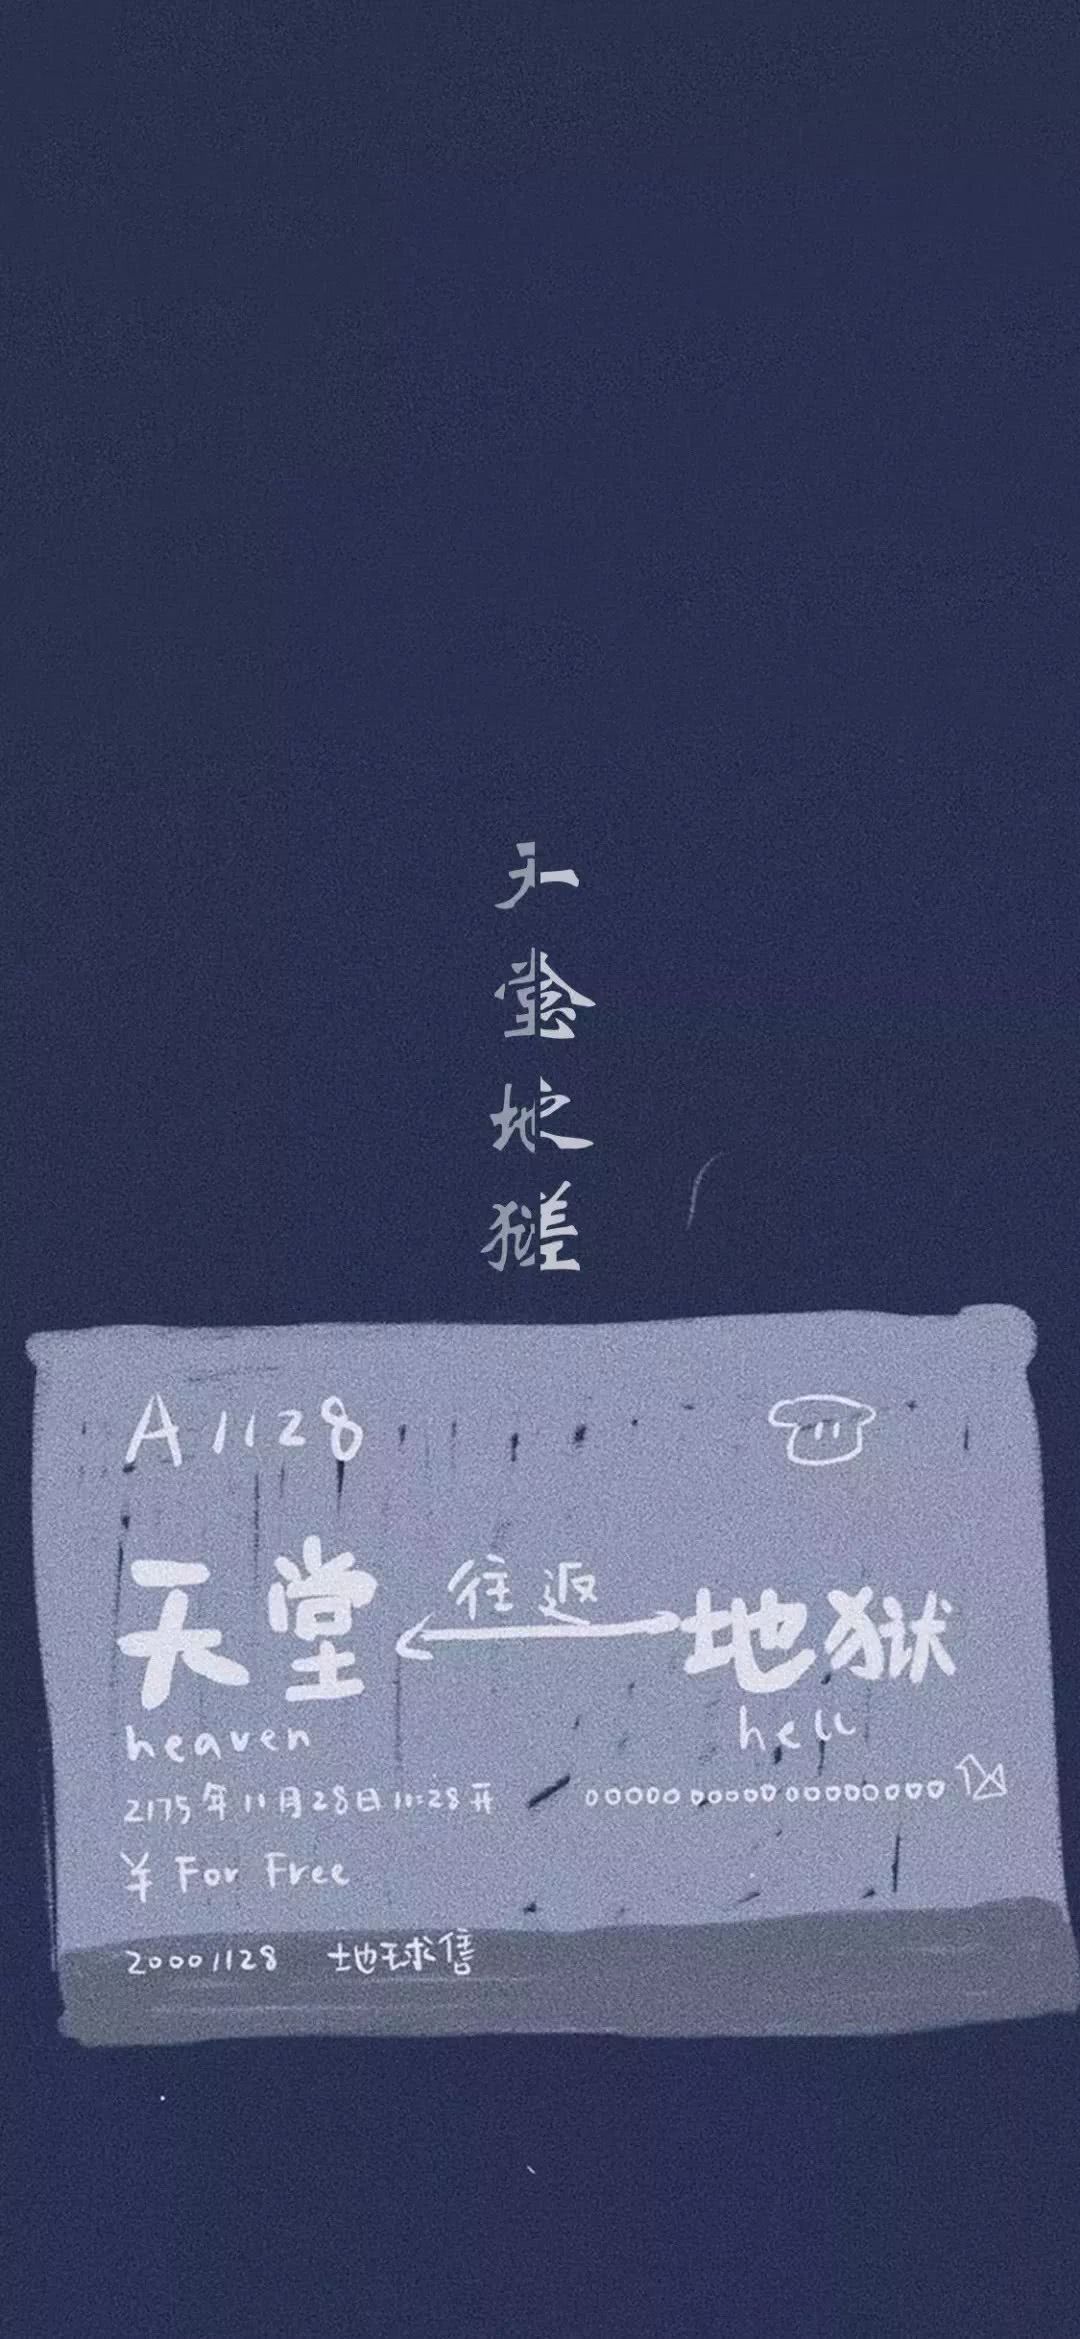 天堂地狱
一念之差
A1128
天堂 往返 地狱
heaven hell
2175年11月28日11:28开
¥ For Free
20001128 地球售